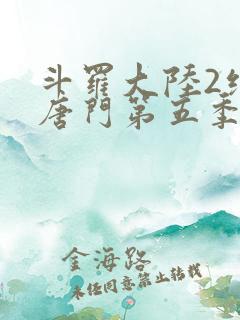 斗羅大陸2
唐門第五季
金海路
未经同意禁止转载